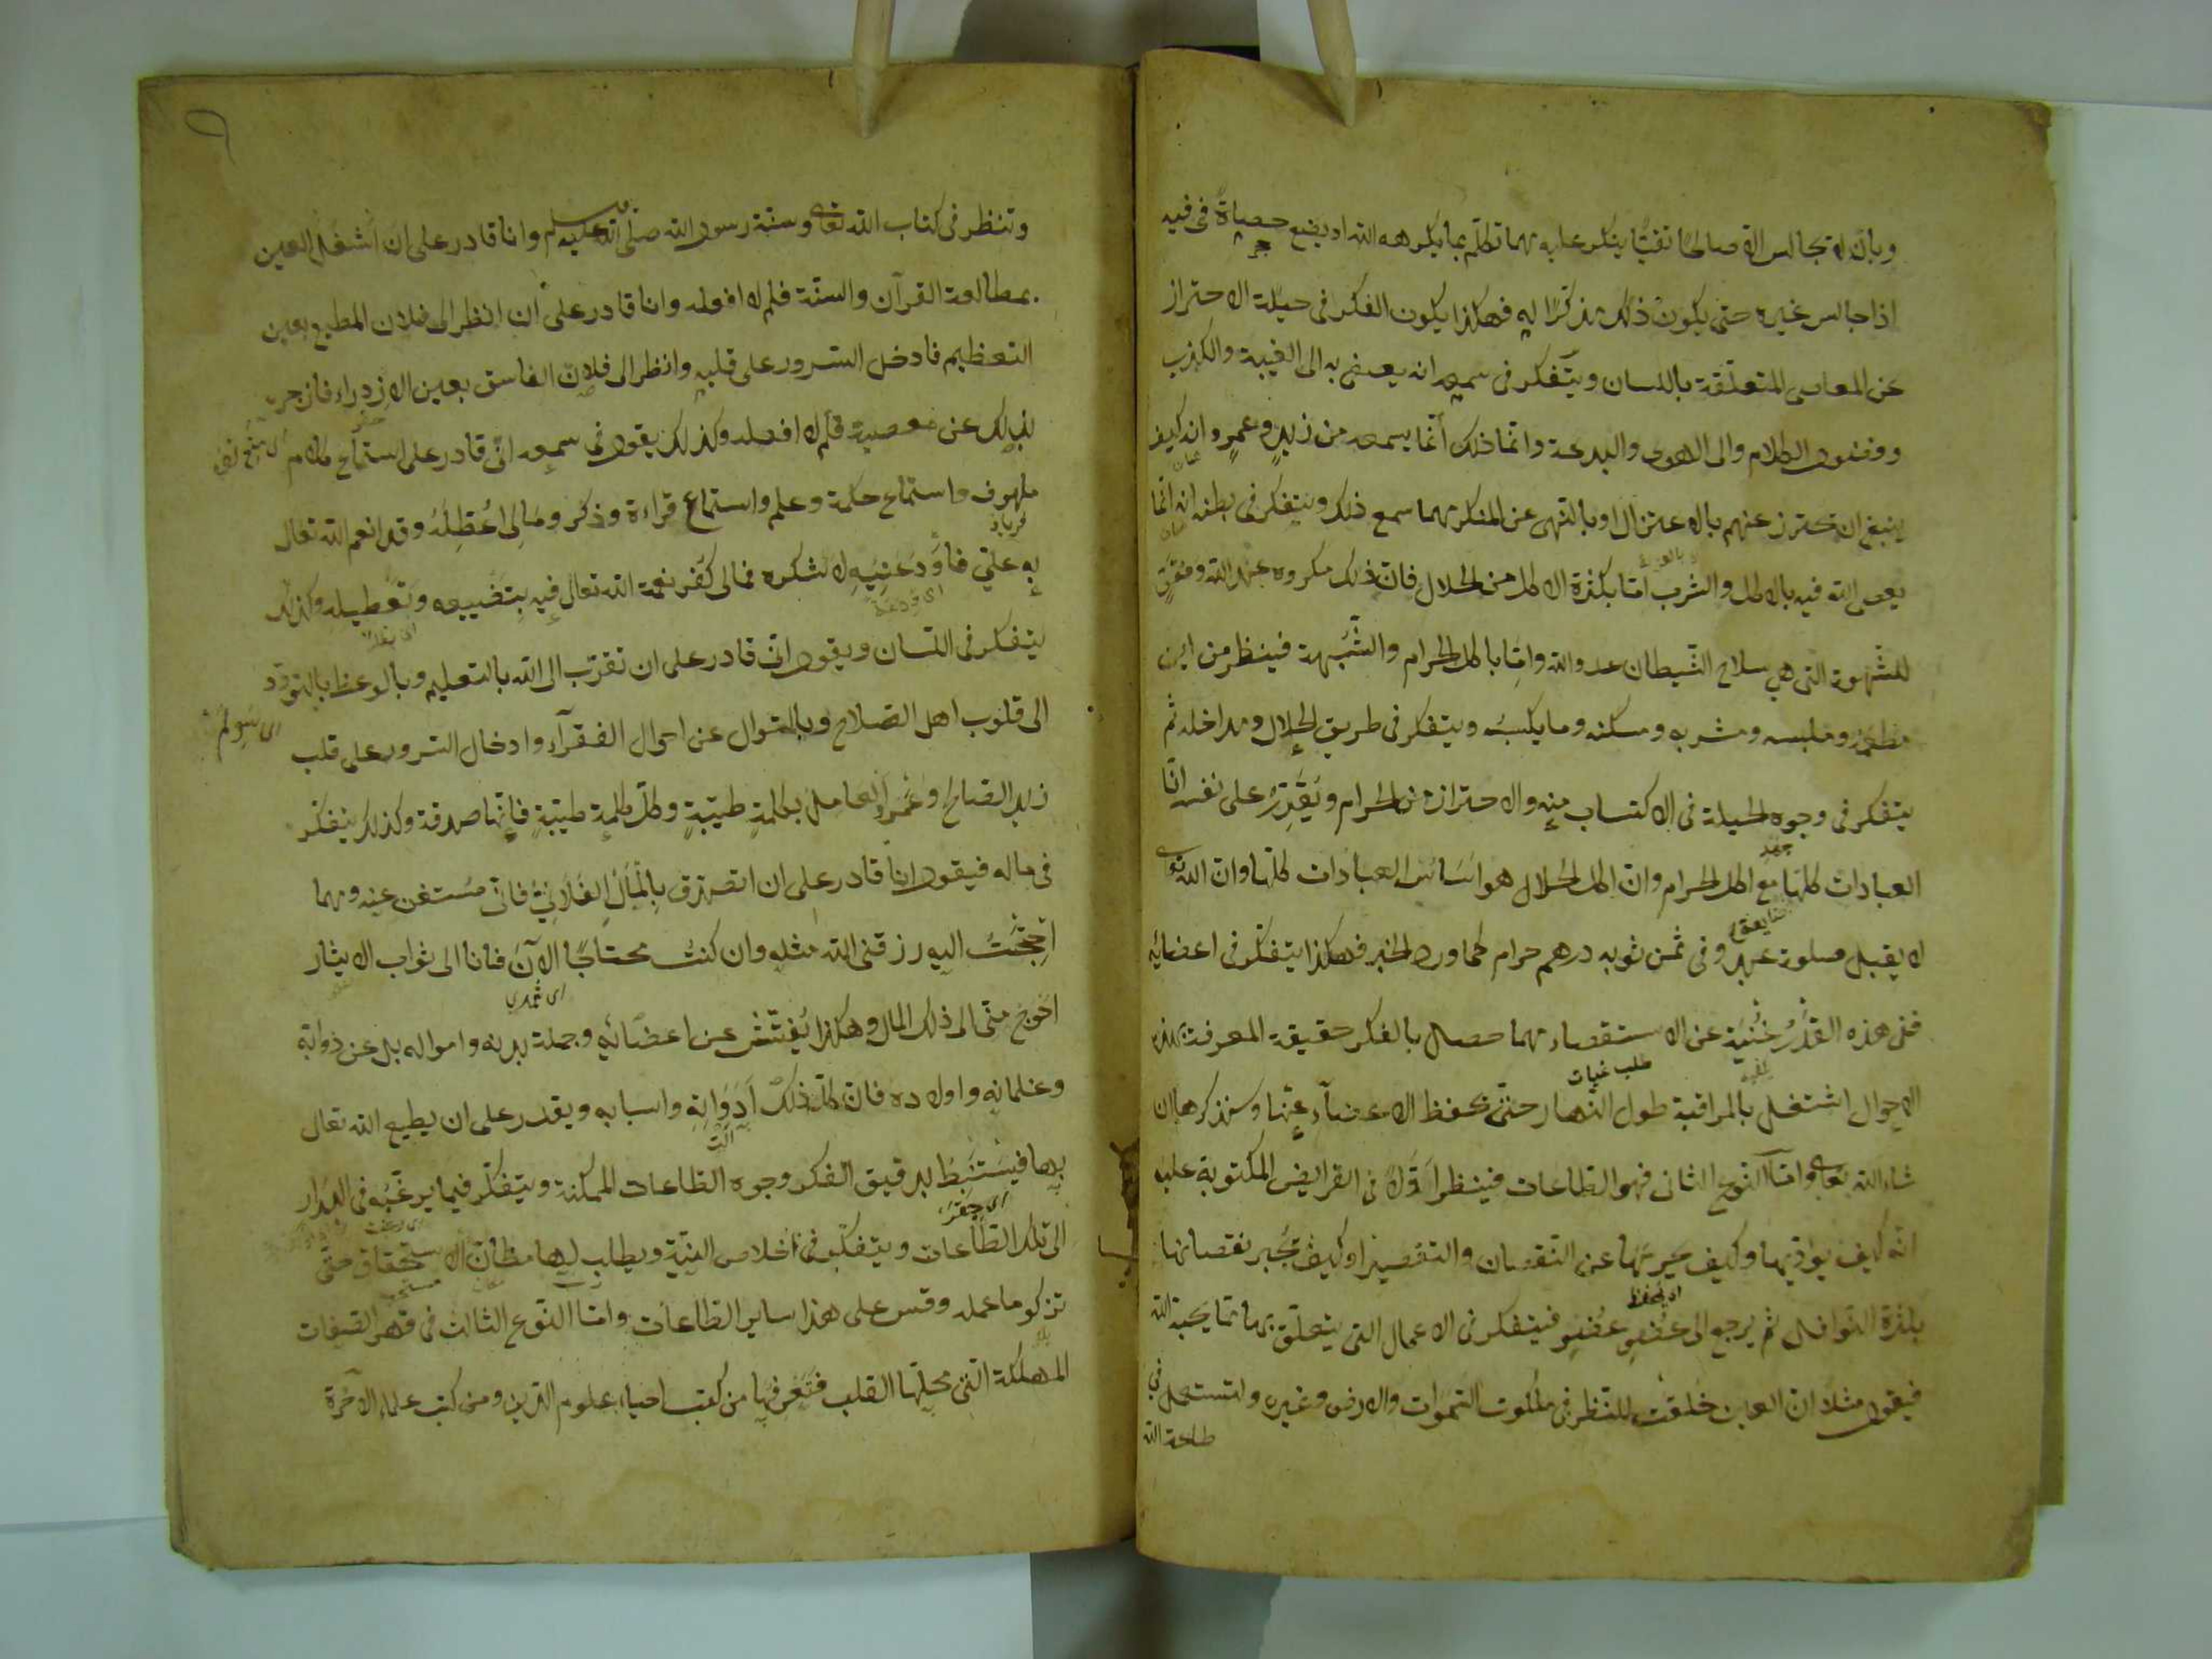 وبان لا تجالس الا صالحًا تقيًّا ينكر عليه مهما تكلّم بما يكرهه الله او يضع حصاةً فى فيه
اذا جالس غيره حتى يكون ذلك مذكرًا له فهكذا يكون الفكر فى حيلة الاحتراز
عن المعاصى المتعلّقة باللسان ويتّفكر فى سمعه انه يصغى به الى الغيبة والكذب
وفضول الكلام والى اللهو والبدعة وانّما ذلك أنّما يسمعه من زيدٍ وعمرٍو انه كيف
ينبغى ان تحترز عنهم بالاعتزال او بالنهى عن المنكر مهما سمع ذلك ويتفكر فى بطنه انه انّما
يعصى الله فيه بالاكل والشرب امّا بكثرة الاكل من الحلال فانّ ذلك مكروه عند الله ومقوّ
للشّهوة التى هى سلاح الشّيطان عدو الله وامّا باكل الحرام والشّبهة فينظر من اين
مطعمه وملبسه ومشربه ومسكنه وما يكسبُه ويتفكر فى طريق الحلال ومداخله ثم
يتفكر فى وجوه الحيلة فى الاكتساب منه والاحتراز من الحرام ويُقَدِّرَ على نفسه انّ
العبادات كلها مع اكل الحرام وان اكل الحلال هو اسَاس العبادات كلّها وان الله تعالى
لا يقبل صلوة عبد وفى ثمن ثوبه درهم حرام كما ورد الخبر فهكذا يتفكّر فى اعضائه
ففى هذه القَدْرُ غُنْيَة عن الاستقصاء مهما حصل بالفكر حقيقة المعرفة بهذه
الاحوال اشتغل بالمراقبة طول النهار حتّى يحفظ الاعضآء عنها وسنذكرها ان
شاء الله تعالى وامّا النّوع الثانى فهو الطاعات فينظر اوّلًا فى الفرايض المكتوبة عليه
انّه كيف يؤدّيها وكيف يحرسها عن النّقصان والتقصير او كيف تُجبر نقصانها
بكثرة النّوافل ثم يرجع الى عُضْوٍ عُضْوٍ فيتفكر فى الاعمال التى يتعلّق بها ممّا يحبّه الله
فيقول مثلًا انّ العين خُلقت للنظر فى ملكوت السّموات والارض وغيره ولتستعمل فى
طاعة الله
وتنظر فى كتاب الله تعالى وسنّة رسول الله صلّى الله عليه وسلم وانا قادر على ان اُشغل العين
بمطالعة القرآن والسنّة فلم لا افعله وانا قادر على ان انظر الى فلان المطيع بعين
التعظيم فادخل السّرور على قلبه وانظر الى فلان الفاسق بعين الازدراء فازجره
بذلك عن معصية فلم لا افعله وكذلك يقول فى سمعه انّى قادر على استماع كلام
ملهوف واستماع حكمة وعلم واستماع قراءة وذكر ومَالِى اُعَطِّلُهُ وقد انعم الله تعالى
به علىّ فاَوْدَعَنِيهِ لا شكره فمالى كُفر نعمة الله تعالى فيه بتضييعه وتَعْطيله وكذلك
يتفكر فى اللّسان ويقول انى قادر على ان تقرّب الى الله بالتعليم وبالوعظ بالتودّد
الى قلوب اهل الصّلاح وبالسّوال عن احوال الفقرآء وادخال السّرور على قلب
زيد الصالح وعَمرو العامل بكلمةٍ طيّبةٍ وكلّ كلمةٍ طيّبةٍ فانّها صدقة وكذلك يتفكّر
فى ماله فيقول انا قادر على ان اتصدّق بالمال الفلانىّ فانّى مُستغن عنه ومهما
احتَجْتُ اليه رزقنى الله مثله وان كنتُ محتاجًا الآنَ فانا الى ثواب الايثار
اَحْوَج منّى الى ذلك المال وهكذا يُفتّش عن اعضَائه وجملة بدنه وامواله بل عن دَوابّه
وغلمانه واولاده فانّ كلّ ذلك اَدَوَاتِه واسبابه ويقدر على ان يطيع الله تعالى
بها فيَسْتَنْبِطُ بدقيق الفكر وجوه الطّاعات الممكنة ويتفكّر فيما يرغّبُه فى البدَار
الى تلك الطّاعات ويتفكّر فى اخلاص النيّة ويطلب لها مظانّ الاستحقاق حتّى
تزكو ما عمله وقس على هذا ساير الطّاعات وامّا النّوع الثالث فى قهر الصّفات
المهلكة التى محلّها القلب فتَعْرِفُها من كتب احياء علوم الدّين ومن كتب علماء الآخرة